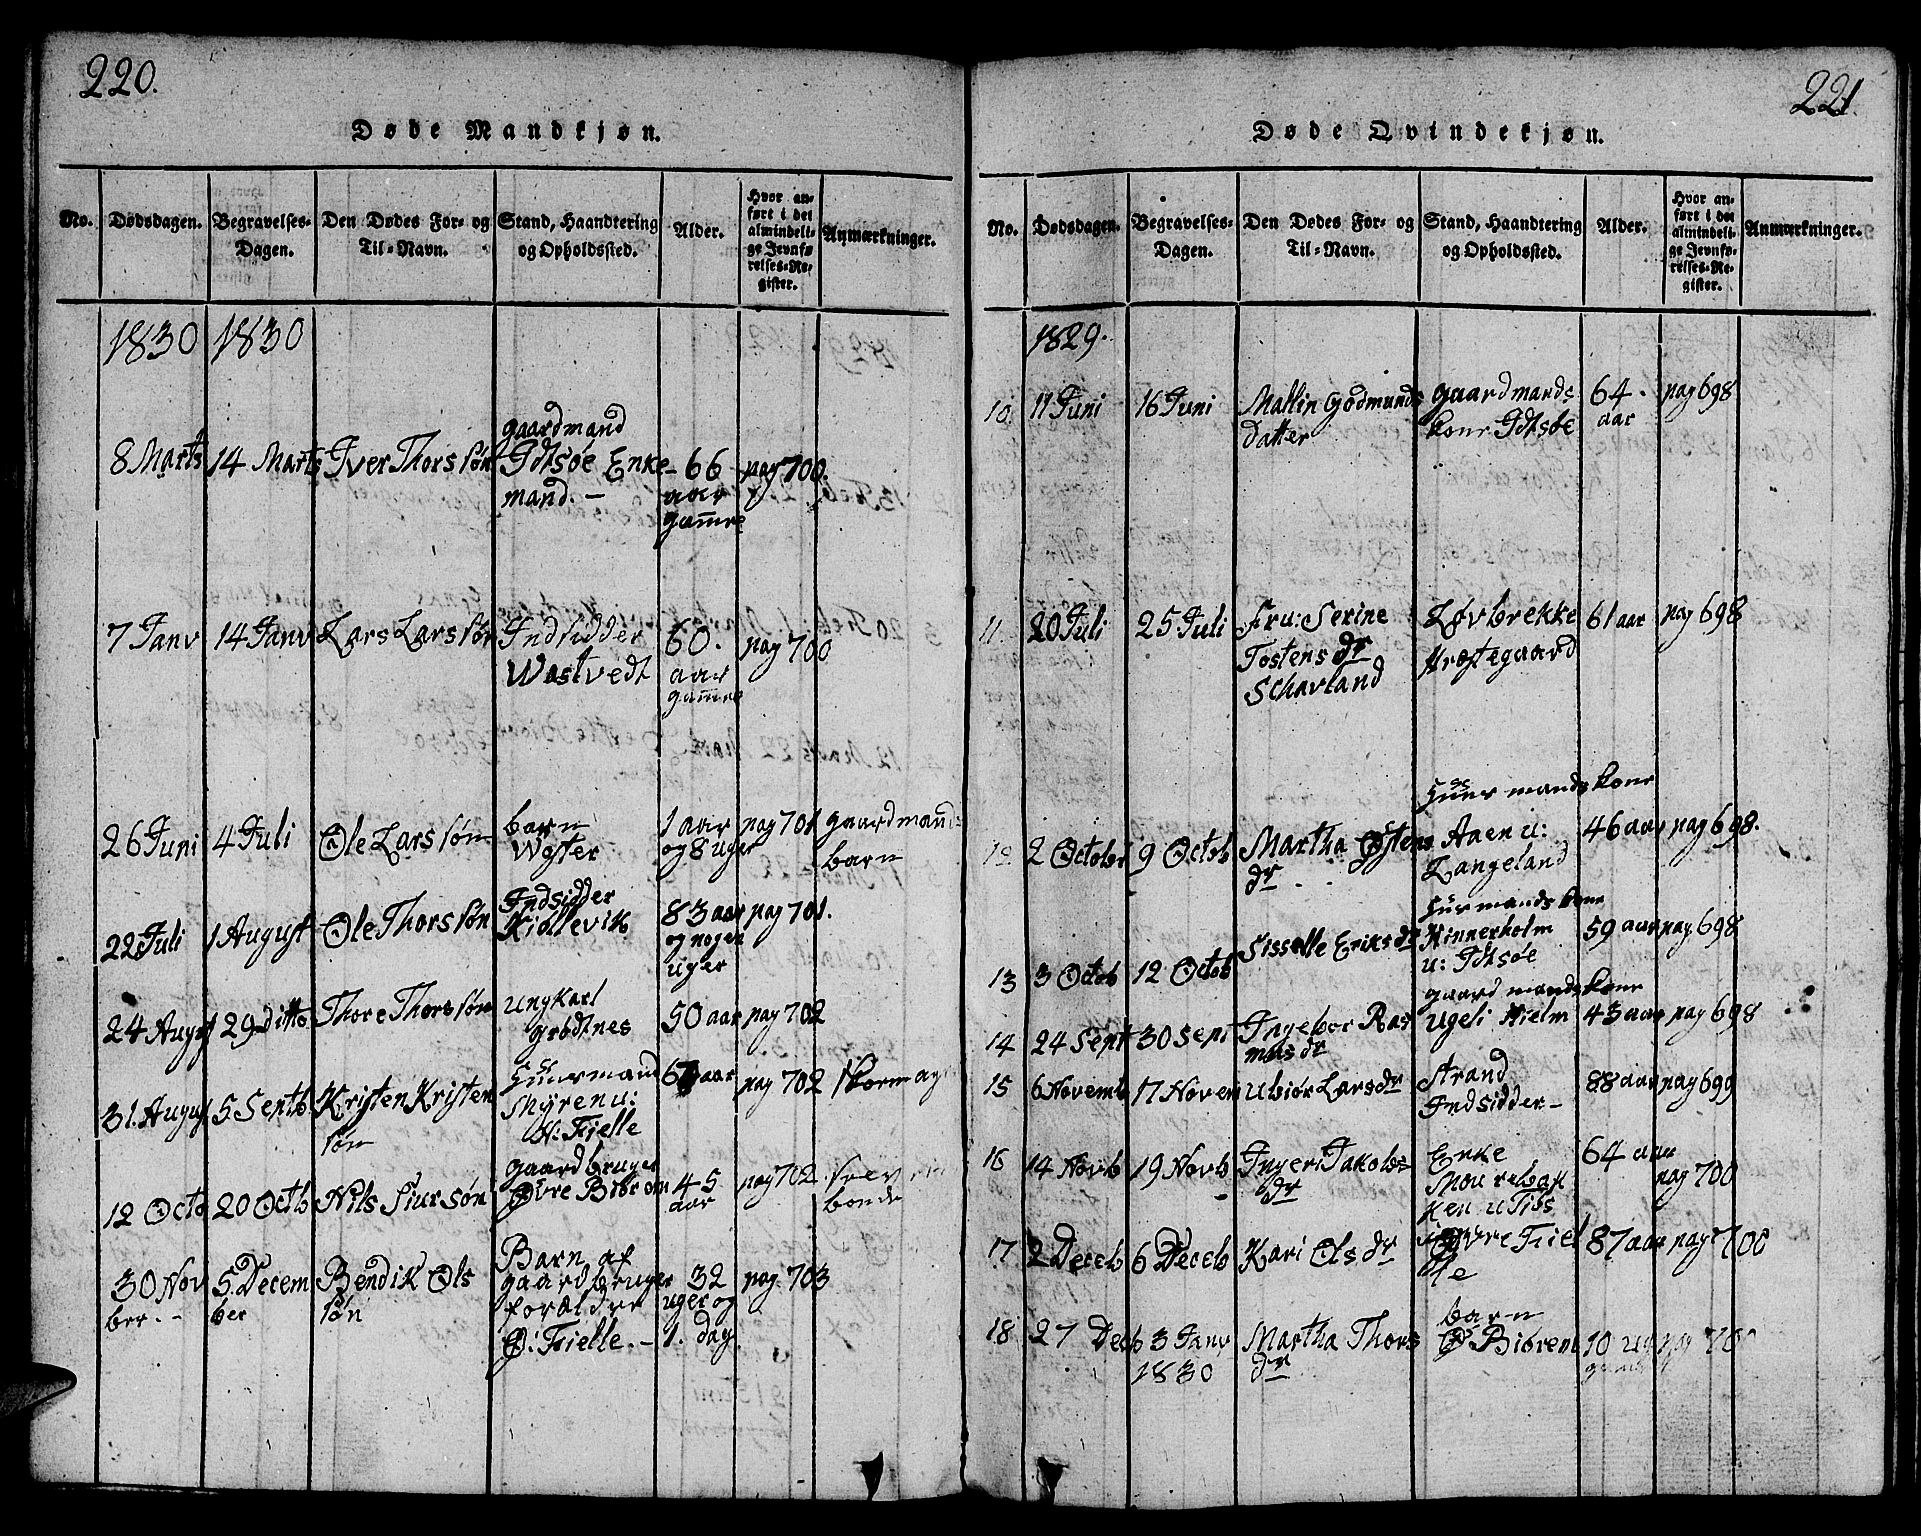 220.
Døde Mandkjøn.
No. Dødsdagen. Begravelses-Dagen. Den Dødes For- og Til-Navn. Stand, Haandtering og Opholdssted. Alder. Hvor anført i det almindelige Jevnførelses-Register. Anmærkninger.
1830 1830
8 Marts 14 Marts Iver Thorssøn gaardmand Idtsøe Enkemand. — 66 aar gamle pag 700.
7 Janv 14 Janv Lars Larssøn Indsidder Wastvedt 60. aar gamle pag 700
26 Juni 4 Juli Ole Larssøn barn Wøster 1 aar og 8 uger pag 701 gaardmand: barn
22 Juli 1 August Ole Thorssøn Indsidder Kidlevik 83 aar og nogen uger pag 701.
24 Augst 29 Ditto Thore Thorssøn Ungkarl grødtnes 50 aar pag 702
31. August 5 Septb Kristen Kristensøn Huusmand Myren u: N: Fielle aar pag 702
12 Octo 20 Octb Nils Siursøn gaardbruger Øvre Bibrem 45 aar pag 702. bonde
30 November. - 5. December Bendik Olssøn Barn af gaardbruger forældre Ø: Fielle. — 32 uger og 1. dag pag. 703
221.
Døde Qvindekjøn.
No. Dødsdagen. Begravelses-Dagen. Den Dødes For- og Til-Navn. Stand, Haandtering og Opholdssted. Alder. Hvor anført i det almindelige Jevnførelses-Register. Anmærkninger.
1829.
10 11 Juni 16 Juni Mallin Godmunds Datter gaardmands kone Idtsøe 64. aar pag 698
11. 20 Juli 25 Juli Fru: Serine Tostens dr Schavland Løvbrekke Præstegaard 61 aar pag 698
12 2 Octobr 9 Octob Martha Østens dr Huusmands kone Aaen u: Langeland 46 aar pag 698.
13 3 Octob 12 Octob Sisselle Eriks dr Huusmands kone Hinnerholm u: Idtsøe 59 aar pag 698
14 24 Sept 30 Sept Ingebor Rasmus dr gaardmands kone Ugeli Hielm 43 aar pag 698
15 6 Novemb 17 Novem Ubiør Lars dr Strand Indsidder — 88 aar pag 699
16 14 Novb 19 Novb Ingeri Jakobs dr Enke 64 aar pag 700
17 2 Deceb 6 Deceb Kari Ols dr Øvre Fielle 87 aar pag 700
18 27 Decb 3 Janv 1830 Martha Thors dr barn Ø Bibrem 10 pag